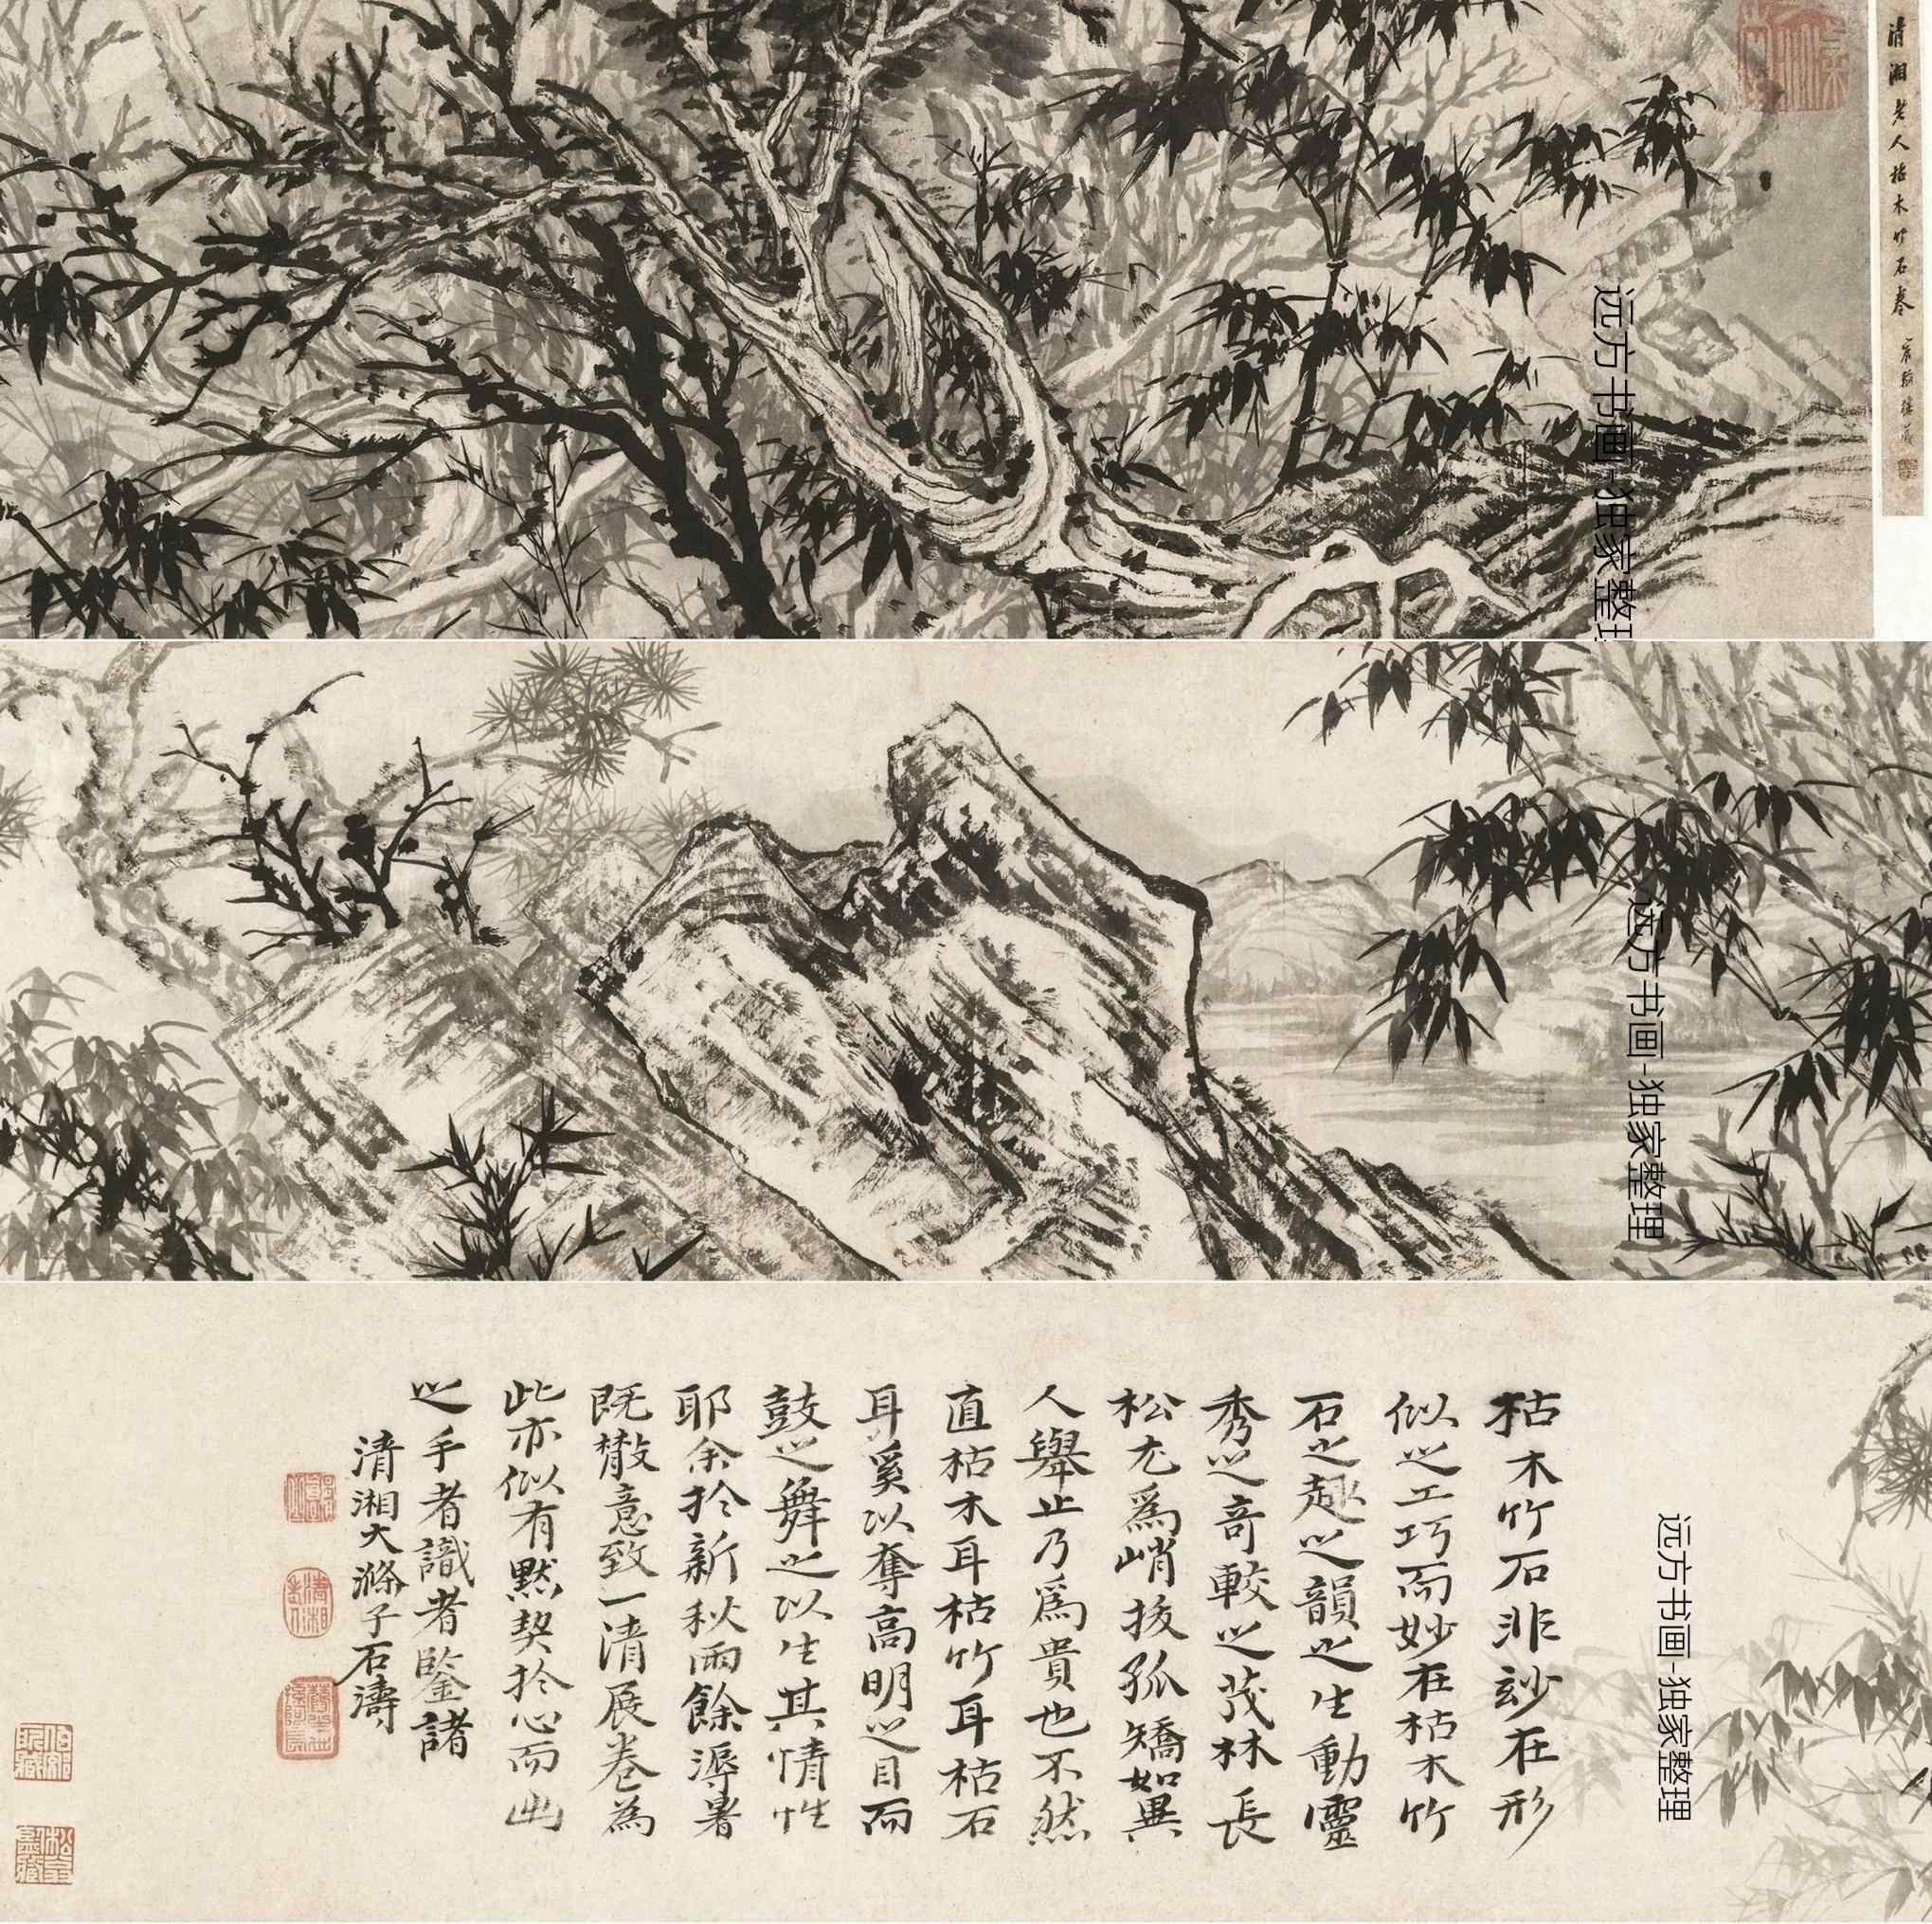 清湘老人枯木竹石卷
远方书画-独家整理
远方书画-独家整理
远方书画-独家整理
枯木竹石非玅在形
似之工巧而妙在枯木竹
石之趣之韻之生動靈
秀之奇較之茂林長
松尤爲峭拔孤矯如異
人舉止乃爲貴也不然
直枯木耳枯竹耳枯石
耳奚以奪高明之目而
鼓之舞之以生其情性
耶余於新秋雨餘溽暑
既散意致一清展卷為
此亦似有黙契於心而出
之手者識者鑒諸
清湘大滌子石濤
清湘老人